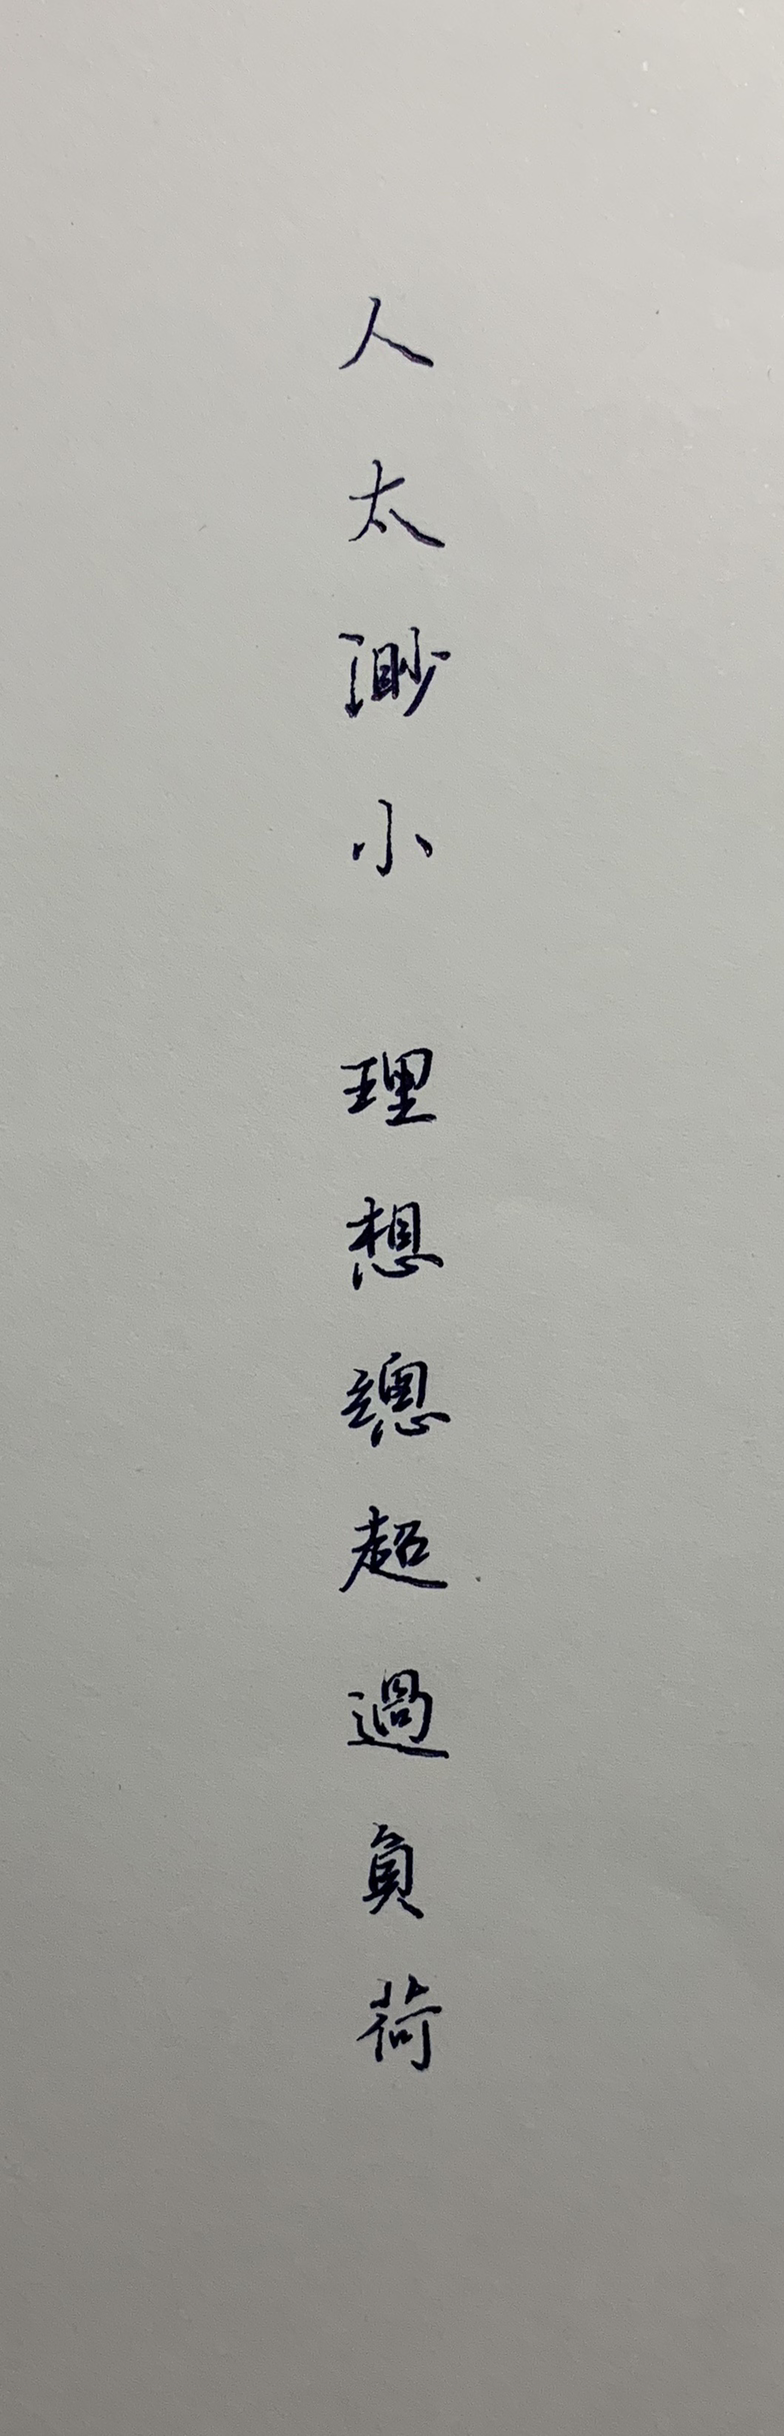 人太渺小 理想總超過負荷